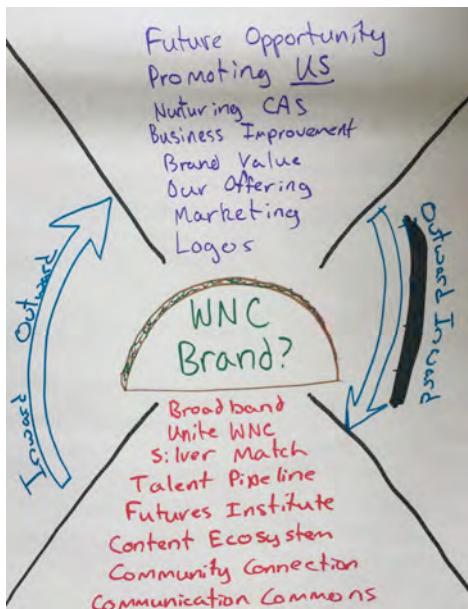 Future Opportunity
Promoting US
Nurturing CAS
Business Improvement
Brand Value
Our Offering
Marketing
Logos
Inward Outward
Outward Inward
WNC
Brand?
Broadband
Unite WNC
Silver Match
Talent Pipeline
Futures Institute
Content Ecosystem
Community Connection
Communication Commons